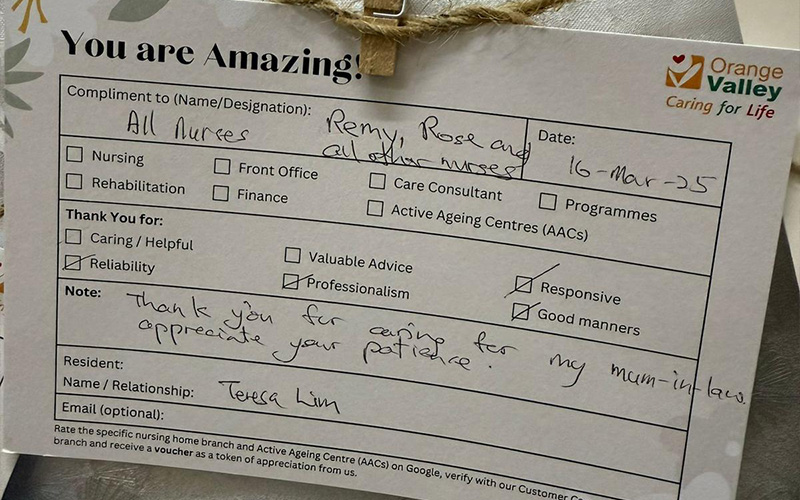 You are Amazing!
Orange
Valley
Caring for Life
Compliment to (Name/Designation):
All Nurses
Remy, Rose and
all other nurses
Date:
16-Mar-25
Nursing
Front Office
Care Consultant
Programmes
Rehabilitation
Finance
Active Ageing Centres (AACs)
Thank You for:
Caring / Helpful
Valuable Advice
Responsive
Reliability
Professionalism
Good manners
Note:
Thank you for caring for my mum-in-law.
appreciate your patience.
Resident:
Name / Relationship:
Teresa Lim
Email (optional):
Rate the specific nursing home branch and Active Ageing Centre (AACs) on Google, verify with our Customer
branch and receive a voucher as a token of appreciation from us.